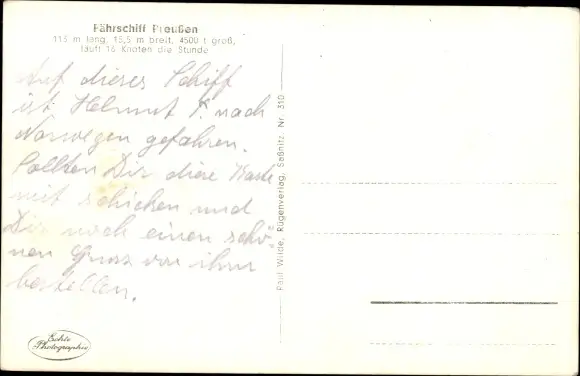 Fährschiff Preußen
113 m lang, 15,5 m breit, 4500 t groß,
läuft 16 Knoten die Stunde
Auf dieses Schiff
ist Helmut F. nach
Norwegen gefahren.
Sollten Dir diese Karte
mit schicken und
Dir noch einen schö
nen Gruss von ihm
bestellen.
Paul Wilde, Rügenverlag, Saßnitz, Nr. 310
Echte
Photographie